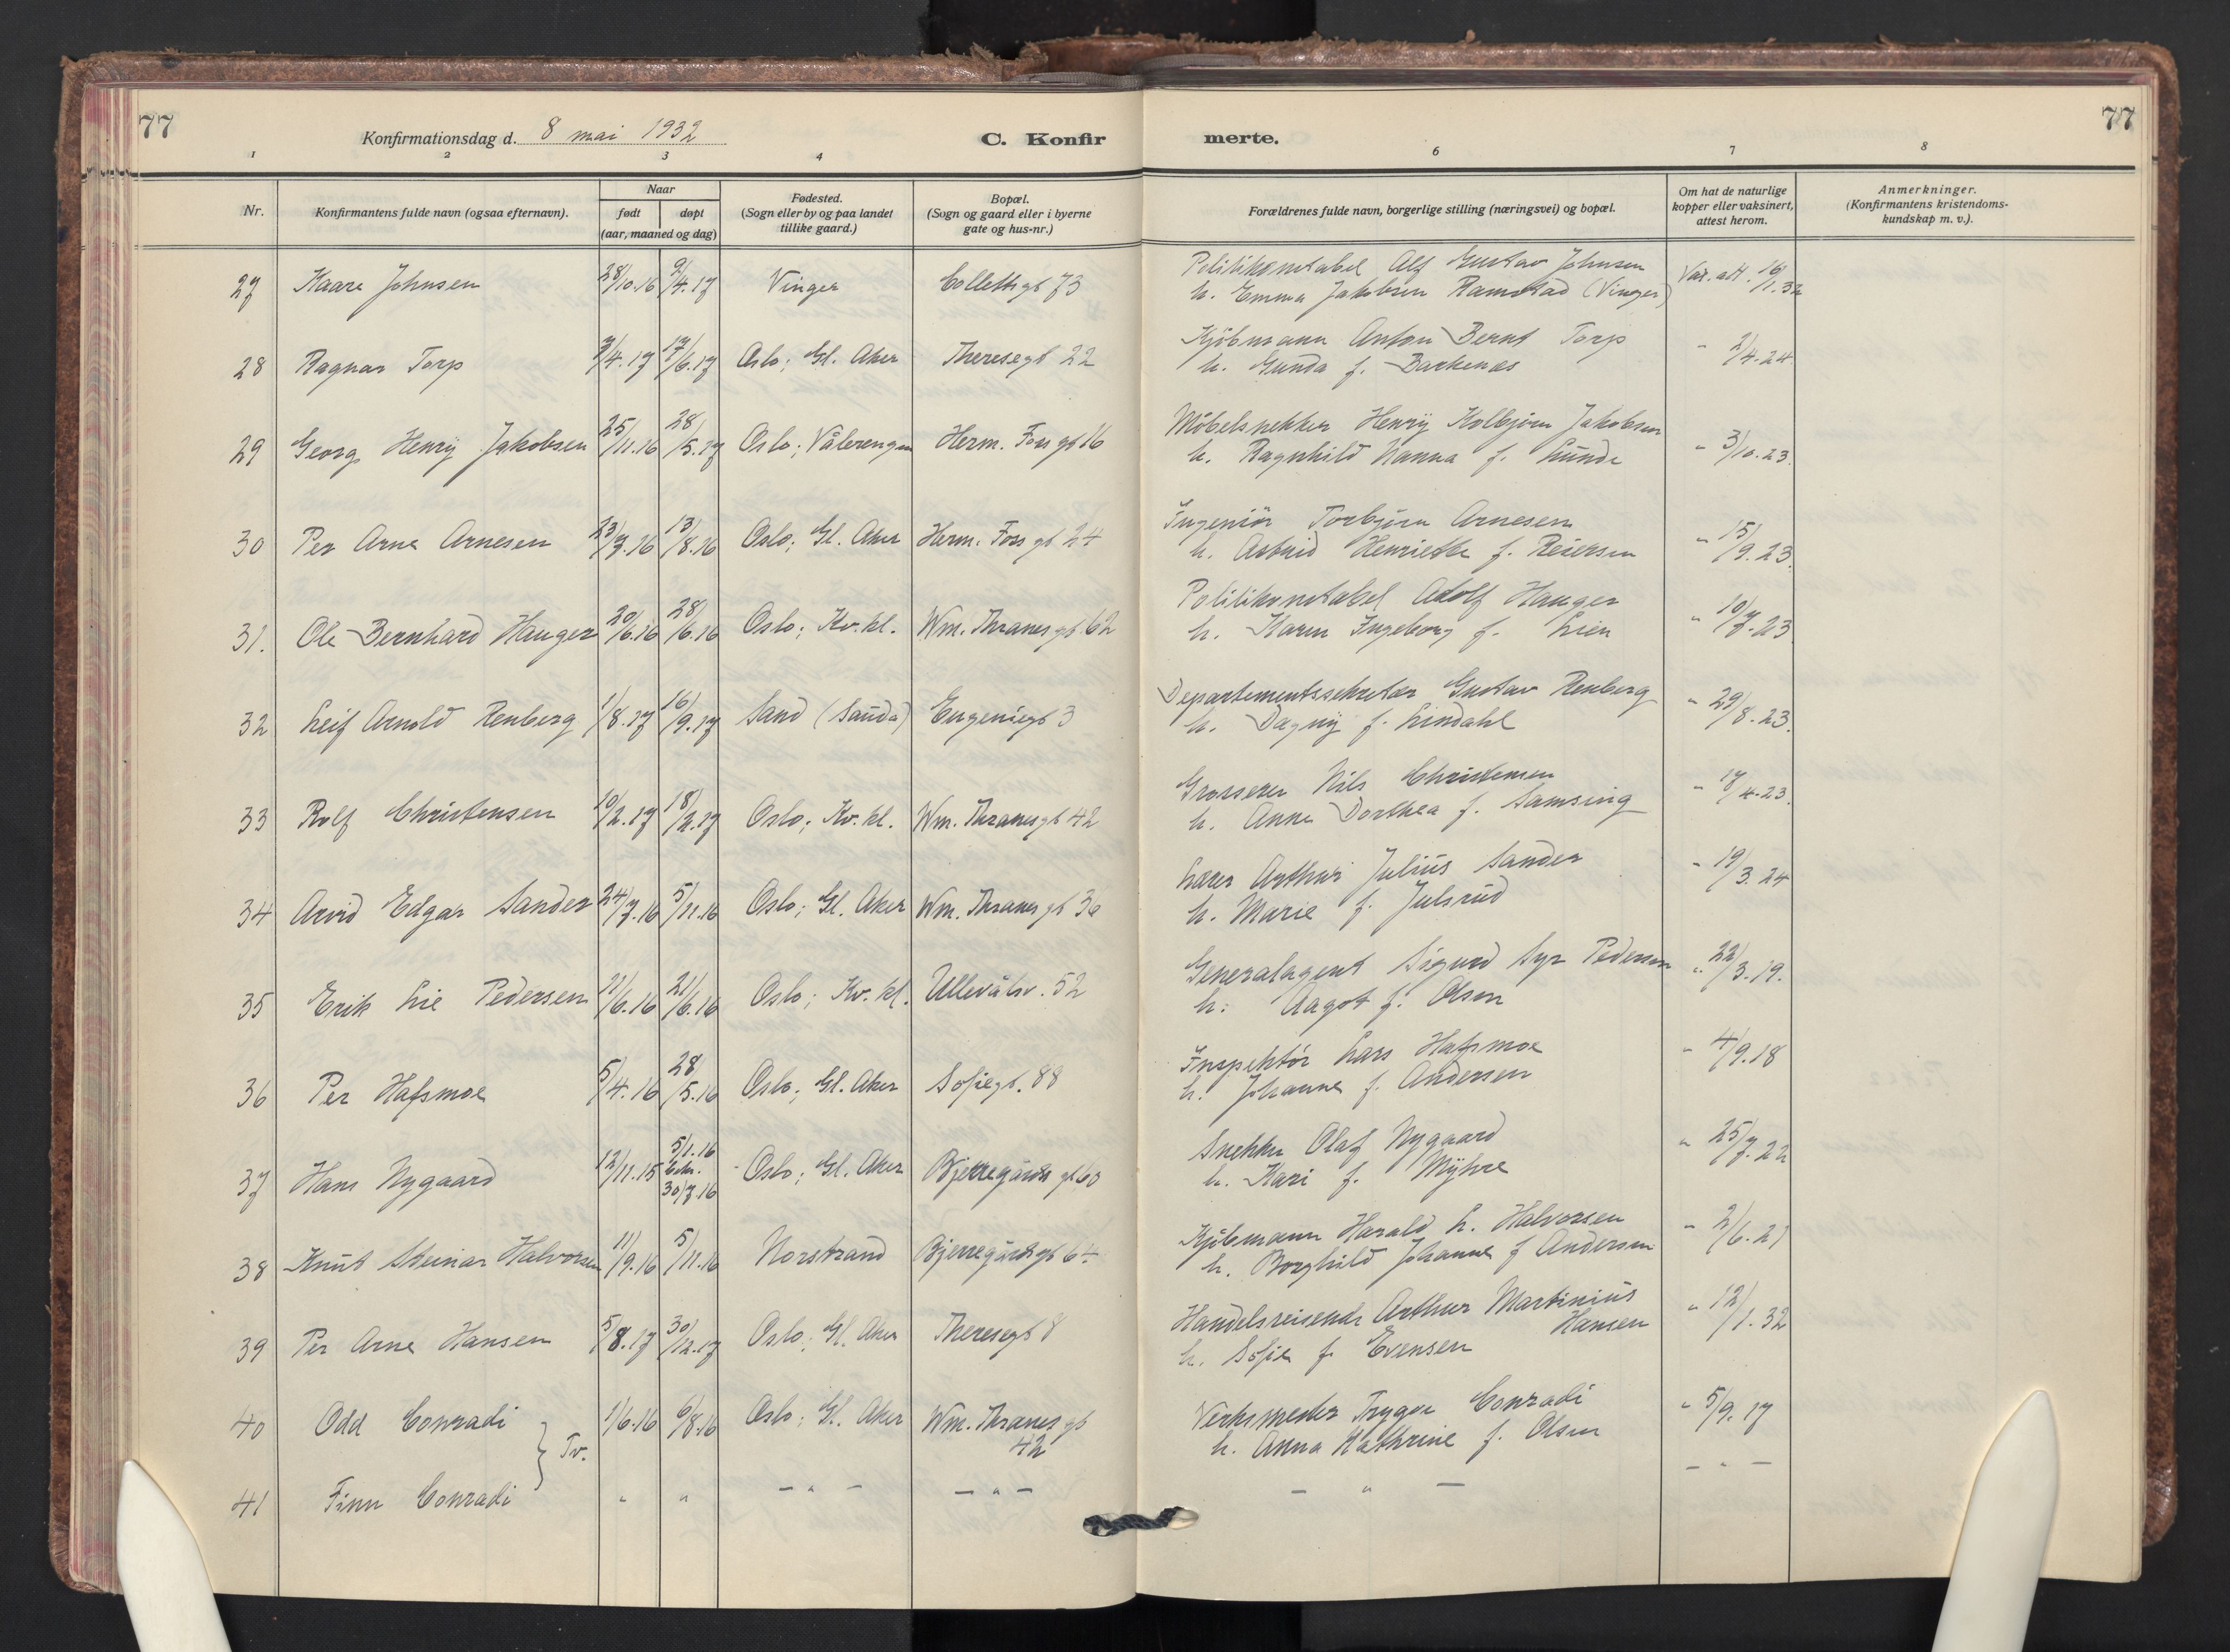 77
Konfirmationsdag d. 8 mai 1932
C. Konfir
merte.
77
1 2 3 4 6 7 8
Nr.
Konfirmantens fulde navn (ogsaa efternavn).
Naar
født døpt
(aar, maaned og dag)
Fødested.
(Sogn eller by og paa landet
tillike gaard.)
Bopæl.
(Sogn og gaard eller i byerne
gate og hus-nr.)
Forældrenes fulde navn, borgerlige stilling (næringsvei) og bopæl.
Om hat de naturlige
kopper eller vaksinert,
attest herom.
Anmerkninger.
(Konfirmantens kristendoms-
kundskap m. v.).
27 Kaare Johnsen 28/10.16 9/4.17 Vinger Collettsgt 73 Politikonstabel Alf Gustav Johnsen Vax. att. 16/1.32
h. Emma Jakobsen Ramstad (Vinger)
28 Ragnar Torp 7/4.17 17/6.17 Oslo; Gl. Aker Theresegt 22 Kjöbmann Anton Bernt Torp " 2/4.24
h. Gunda f. Barkenæs
29 Georg Henry Jakobsen 25/11.16 28/5.17 Oslo; Vålerengen Herm. Foss gt 16 Möbelsnekker Henry Kolbjörn Jakobsen " 3/10.23.
h. Ragnhild Nanna f. Lunde
30 Per Arne Arnesen 23/7.16 13/8.16 Oslo; Gl. Aker Herm. Foss gt 24 Ingeniör Torbjörn Arnesen " 15/9.23.
h. Astrid Henriette f. Reiersen
31. Ole Bernhard Hauger 20/6.16 28/6.16 Oslo; Kv. kl. Wm. Thranes gt. 62 Politikonstabel Adolf Hauger " 10/7.23
h. Karen Ingeborg f. Lien
32 Leif Arnold Renberg 1/8.17 16/9.17 Sand (Sauda) Eugeniegt 3 Departementssekretær Gustav Renberg " 29/8.23.
h. Dagny f. Lindahl
33 Rolf Christensen 10/2.17 18/2.17 Oslo; Kv. kl. Wm. Thranes gt 42 Grosserer Nils Christensen " 17/4.23.
h. Anna Dorthea f. Samsing
34 Arvid Edgar Sander 24/7.16 5/11.16 Oslo; Gl. Aker Wm. Thranes gt 36 Lærer Arthur Julius Sander " 19/3.24
h. Marie f. Julsrud
35 Erik Lie Pedersen 11/6.16 21/6.16 Oslo; Kv. kl. Ullevålsv. 52 Generalagent Sigurd Syr Pedersen " 22/3.19.
h. Aagot f. Olsen
36 Per Hafsmoe 5/4.16 28/5.16 Oslo; Gl. Aker Sofiegt. 88 Inspektör Lars Hafsmoe " 4/9.18
h. Johanne f. Andersen
37 Hans Nygaard 12/11.15 5/1.16 30/7.16 Oslo; Gl. Aker Bjerregårds gt 60 Snekker Olaf Nygaard " 25/7.22
h. Kari f. Myhre
38 Knut Steinar Halvorsen 11/9.16 5/11.16 Norstrand Bjerregårds gt 64 Kjöbmann Harald L. Halvorsen " 2/6.21
h. Borghild Johanne f Andersen
39 Per Arne Hansen 5/8.17 30/12.17 Oslo; Gl. Aker Theresegt 8 Handelsreisende Arthur Martinius Hansen " 12/1.32
h. Sofie f. Evensen
40 Odd Conradi 1/6.16 6/8.16 Oslo; Gl. Aker Wm. Thranes gt 42 Verksmester Trygve Conradi " 5/9.17
} Tv.
h. Anna Kathrine f. Olsen
41 Finn Conradi " " – " – – " – – " – – " –